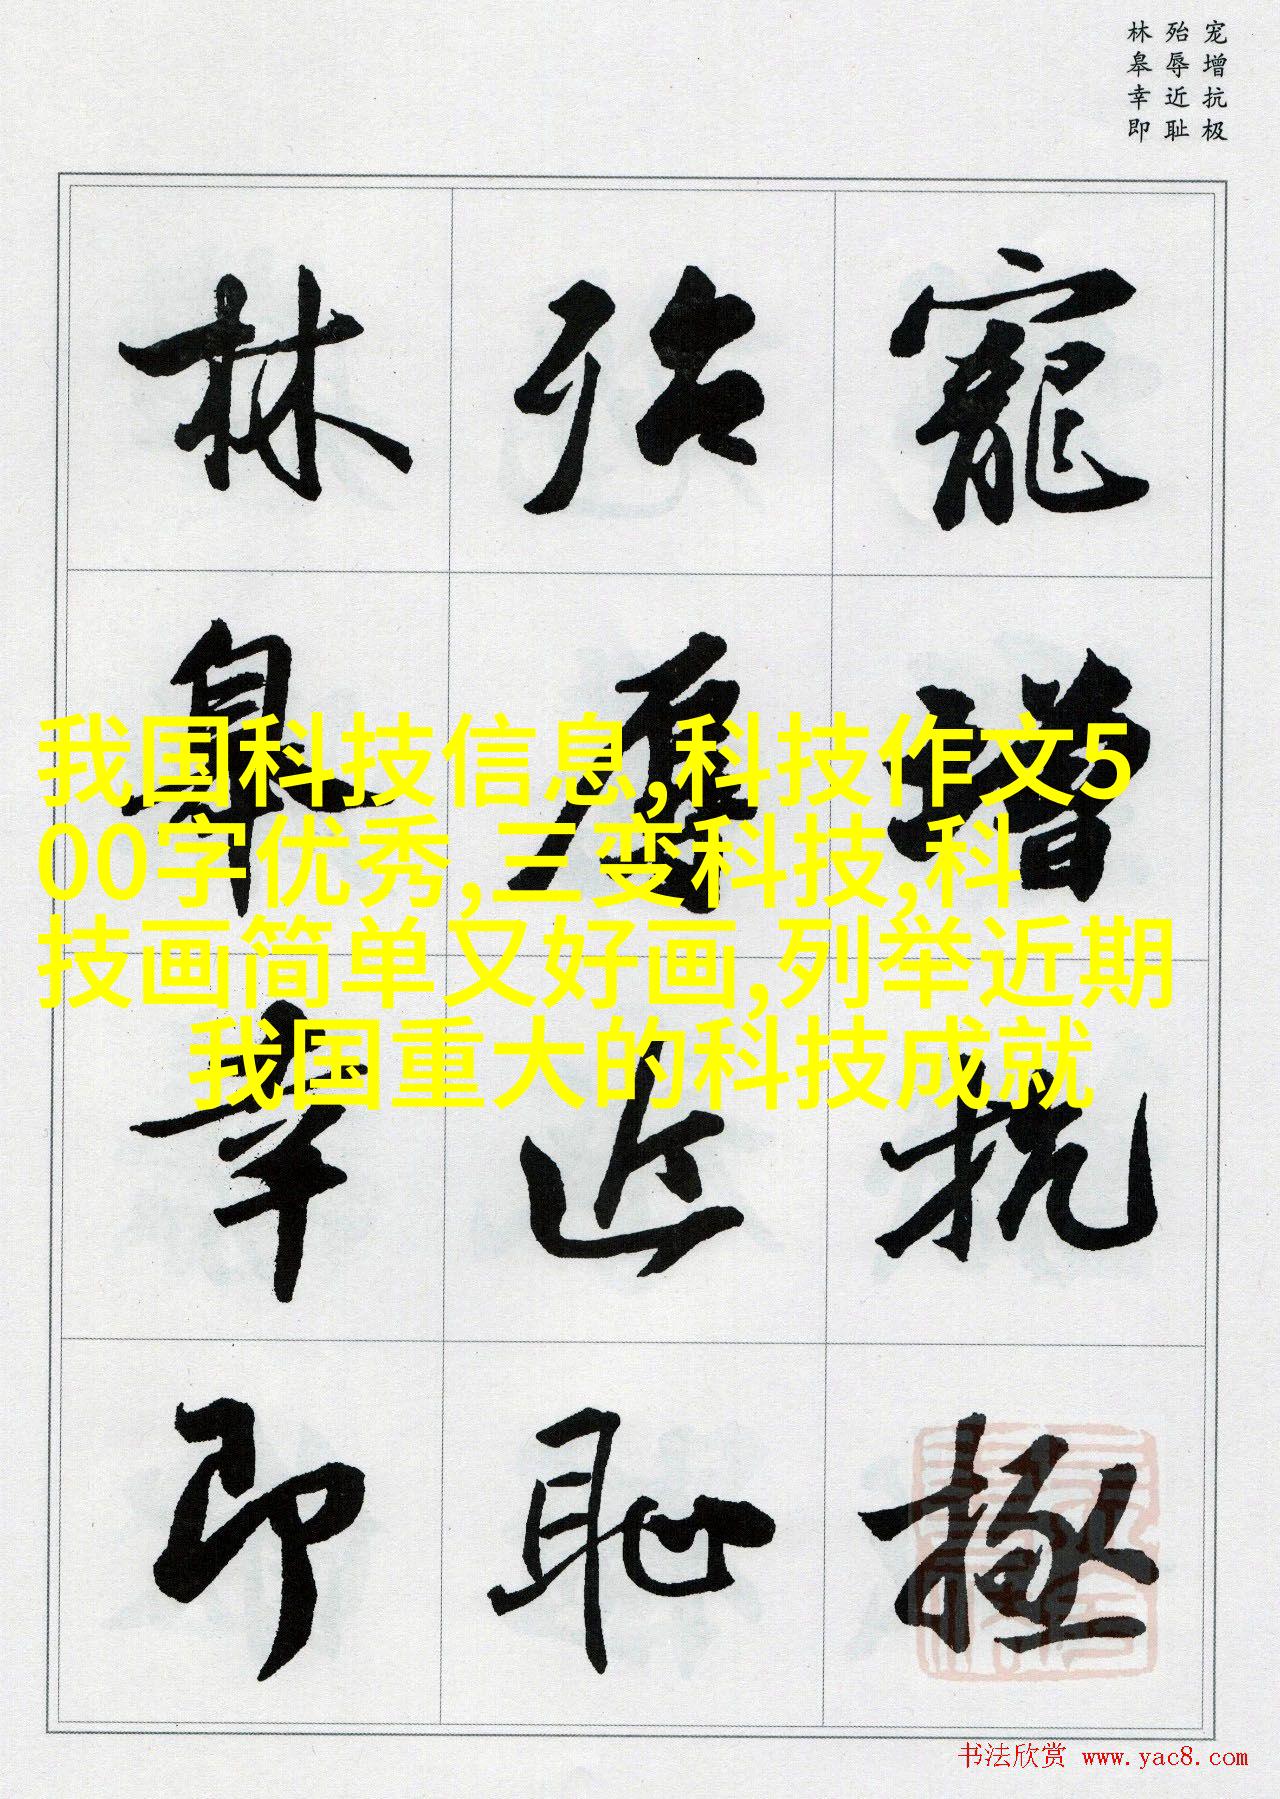 宠增抗极
殆辱近耻
林皋幸即
寵增抗極
殆辱近耻
林皋幸即
我国科技信息,科技作文5
00字优秀,三变科技,科
技画简单又好画,列举近期
我国重大的科技成就
书法欣赏 www.yac8.com